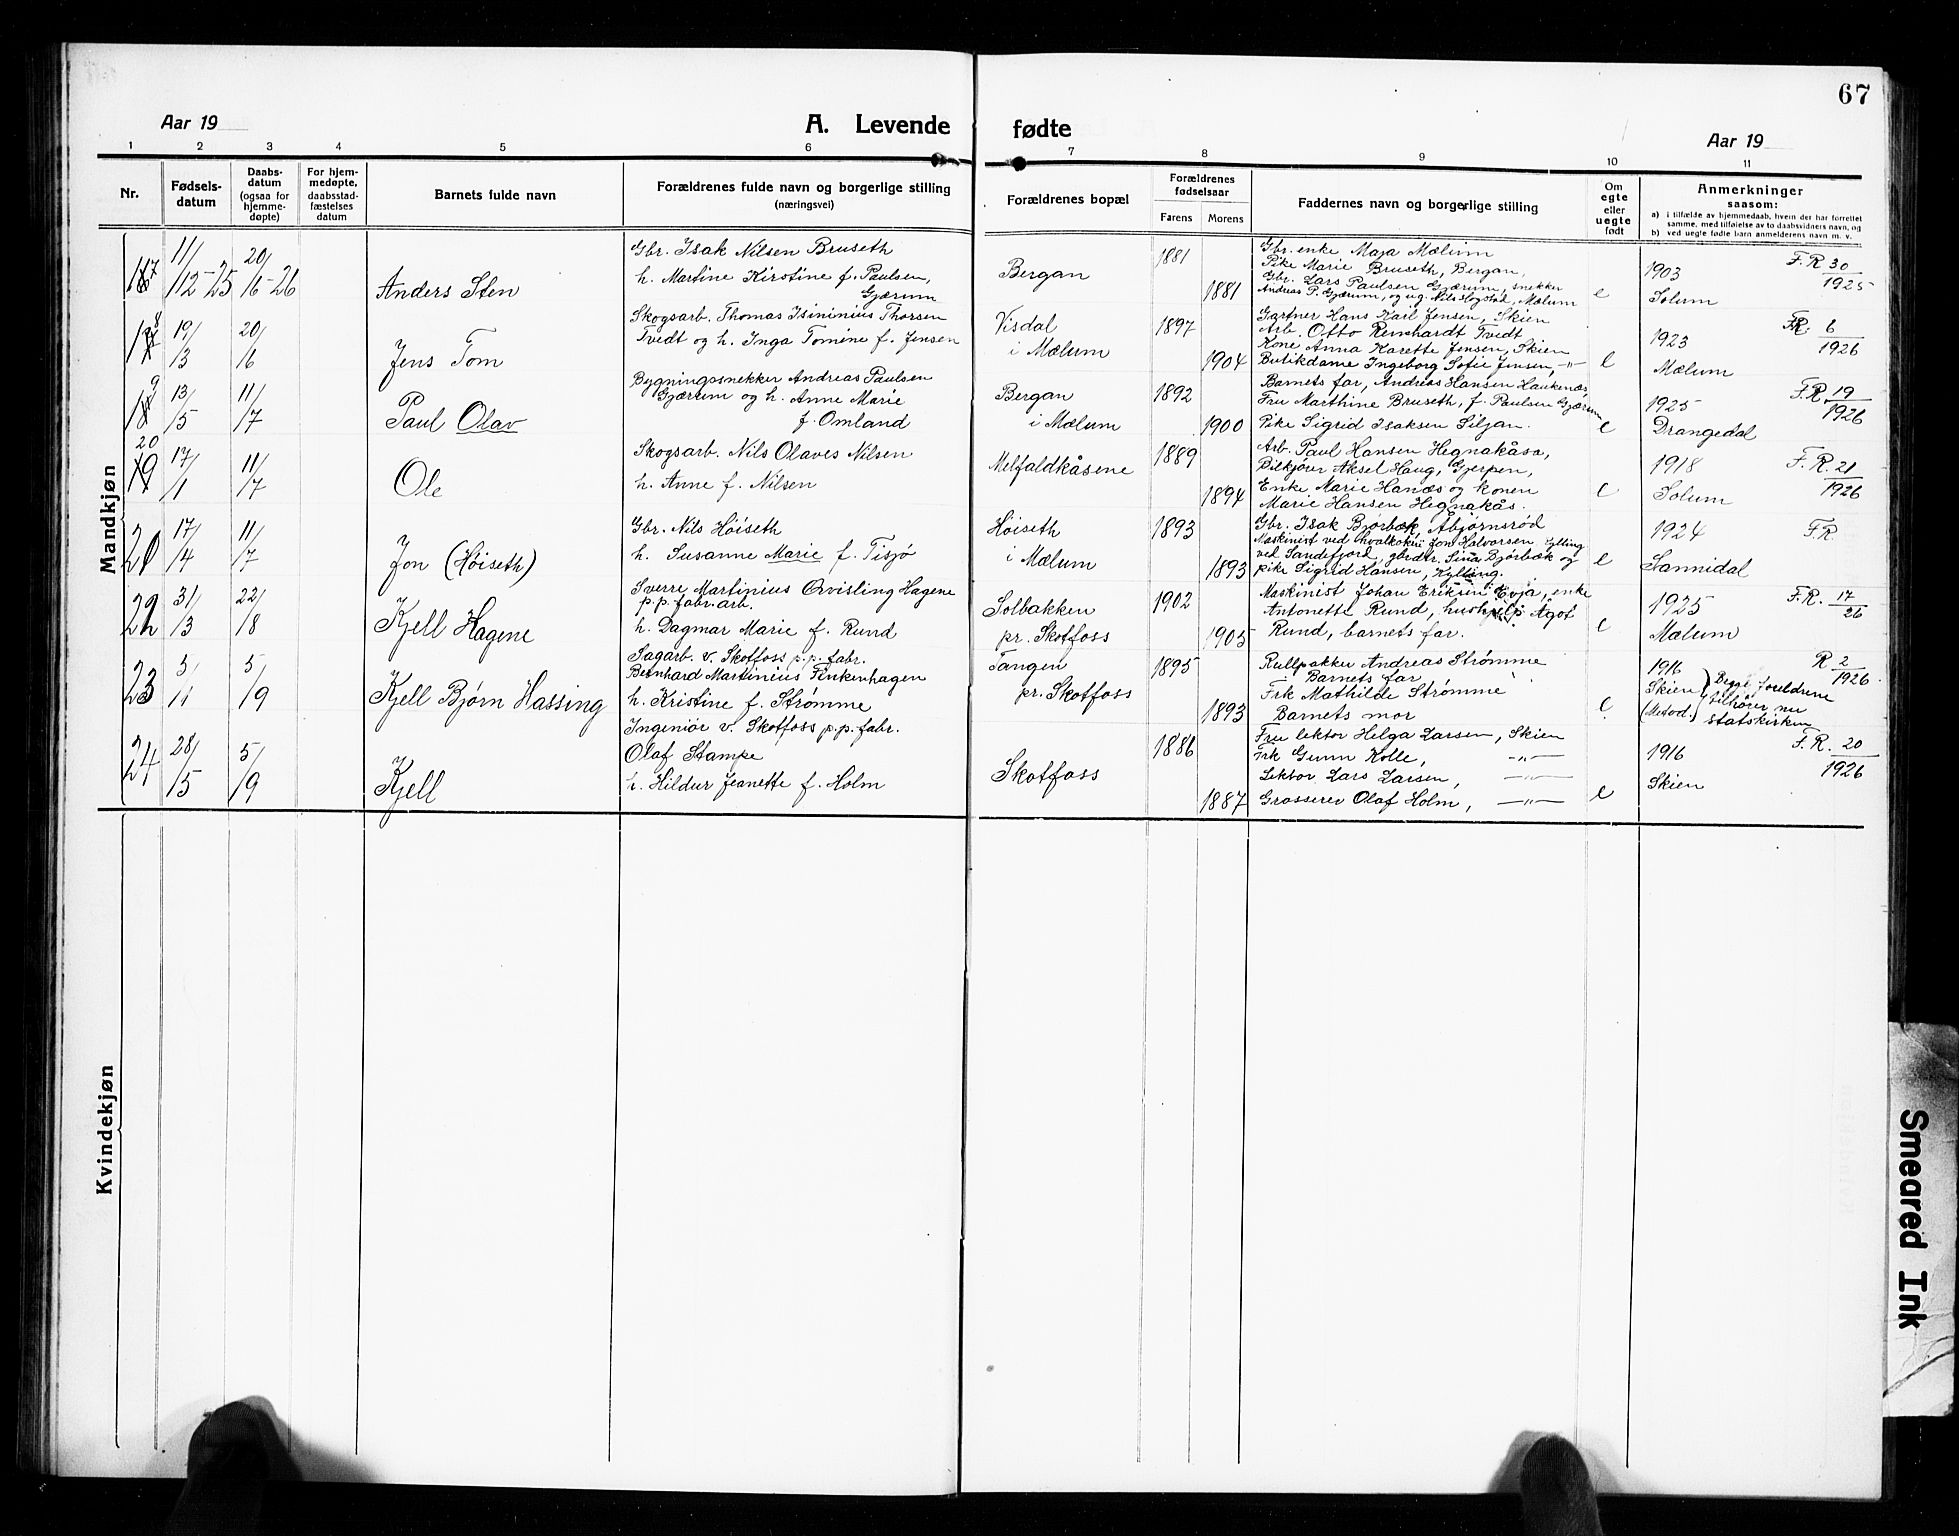 67
Aar 19
A. Levende
fødte
Aar 19
1 2 3 4 5 6 7 8 9 10 11
Nr.
Fødsels-
datum
Daabs-
datum
(ogsaa for
hjemme-
døpte)
For hjem-
medøpte,
daabsstad-
fæstelses
datum
Barnets fulde navn
Forældrenes fulde navn og borgerlige stilling
(næringsvei)
Forældrenes bopæl
Forældrenes
fødselsaar
Farens Morens
Faddernes navn og borgerlige stilling
Om
egte
eller
uegte
født
Anmerkninger
saasom:
a) i tilfælde av hjemmedaab, hvem der har forrettet
samme, med tilføielse av to daabsvidners navn, og
b) ved uegte fødte barn anmelderens navn m. v.
Mandkjøn
17
11/12-25
20/6-26
Anders Sten
Gbr. Isak Nilsen Bruseth
h. Martine Kirstine f. Paulsen,
Gjærum
Bergan
1881
1881
Gbr. enke Maja Mælum
Pike Marie Bruseth, Bergan,
Gbr. Lars Paulsen Gjærum, snekker
Andreas P. Gjærum, og ug. Nils Hogstad, Mælum
e
1903
Solum
F.R. 30/1925
18
19/3
20/6
Jens Tom
Skogsarb. Thomas Isininius Thorsen
Tvedt og h. Inga Tomine f. Jensen
Visdal
i Mælum
1897
1904
Gartner Hans Karl Jensen, Skien
Arb. Otto Reinhardt Tvedt
Kone Anna Karette Jensen, Skien
Butikdame Ingeborg Sofie Jensen, -"-
e
1923
Mælum
F.R. 6/1926
19
13/5
11/7
Paul Olav
Bygningssnekker Andreas Paulsen
Gjærum og h. Anne Marie
f. Omland
Bergan
i Mælum
1892
1900
Barnets far, Andreas Hansen Haukenæs,
Fru Marthine Bruseth, f. Paulsen Gjærum
Pike Sigrid Isaksen Siljan.
e
1925
Drangedal
F.R. 19/1926
20
17/1
11/7
Ole
Skogsarb. Nils Olaves Nilsen
h. Anne f. Nilsen
Melfaldkåsene
1889
1894
Arb. Paul Hansen Hegnakåsa,
Bilkjører Aksel Haug, Gjerpen,
Enke Marie Hanæs og konen
Marie Hansen Hegnakås.
e
1918
Solum
F.R. 21/1926
21
17/4
11/7
Jon (Høiseth)
Gbr. Nils Høiseth
h. Susanne Marie f. Tisjø
Høiseth
i Mælum
1893
1893
Gbr. Isak Bjørbæk, Åbjørnsrød
Maskinist ved hvalkokeri Jon Halvorsen Kylling
ved Sandefjord, gbrdtr. Sina Bjørbæk og
pike Sigrid Hansen, Kylling.
e
1924
Sannidal
F.R
22
31/3
22/8
Kjell Hagene
Sverre Martinius Qvisling Hagene
p.p. fabr. arb.
h. Dagmar Marie f. Rund
Solbakken
pr. Skotfoss
1902
1905
Maskinist Johan Eriksen Evja, enke
Antonette Rund, hushjelp Ågot
Rund, barnets far.
e
1925
Mælum
F.R. 17/26
23
5/11
5/9
Kjell Bjørn Hassing
Sagarb. v. Skotfoss p.p. fabr.
Bernhard Martinius Finkenhagen
h. Kristine f. Strømme
Tangen
pr. Skotfoss
1895
1893
Rullpakker Andreas Strømme
Barnets far
Frk Mathilde Strømme
Barnets mor
e
1916
Skien
(Metod.)
Begge foreldrene
tilhører nu
statskirken
R 2/1926
24
28/5
5/9
Kjell
Ingeniør v. Skotfoss p.p. fabr.
Olaf Stampe
h. Hildur Jeanette f. Holm
Skotfoss
1886
1887
Fru lektor Helga Larsen, Skien
Frk Gunn Kolle, -"-
Lektor Lars Larsen, -"-
Grosserer Olaf Holm, -"-
e
1916
Skien
F.R. 20/1926
Kvindekjøn
Smeared Ink